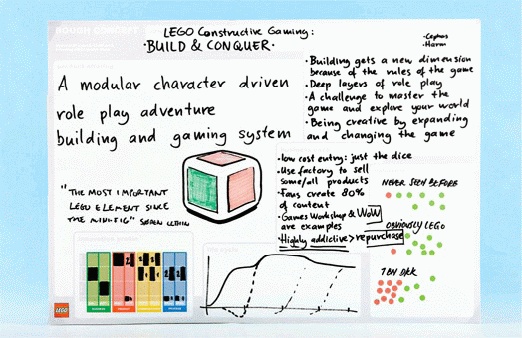 LEGO Constructive Gaming:
·BUILD & CONQUER·
-Cephas
-Harm
A modular character driven
role play adventure
building and gaming system
·Building gets a new dimension
because of the rules of the game
·Deep layers of role play
·A challenge to master the
game and explore your world
·Being creative by expanding
and changing the game
"THE MOST IMPORTANT
LEGO ELEMENT SINCE
THE MINI-FIG"
·low cost entry: just the dice
·Use factory to sell
some/all products
·Fans create 80%
of content
·Games Workshop & WoW
are examples
·Highly addictive > repurchase
NEVER SEEN BEFORE
OBVIOUSLY LEGO
1 BN DKK
LEGO